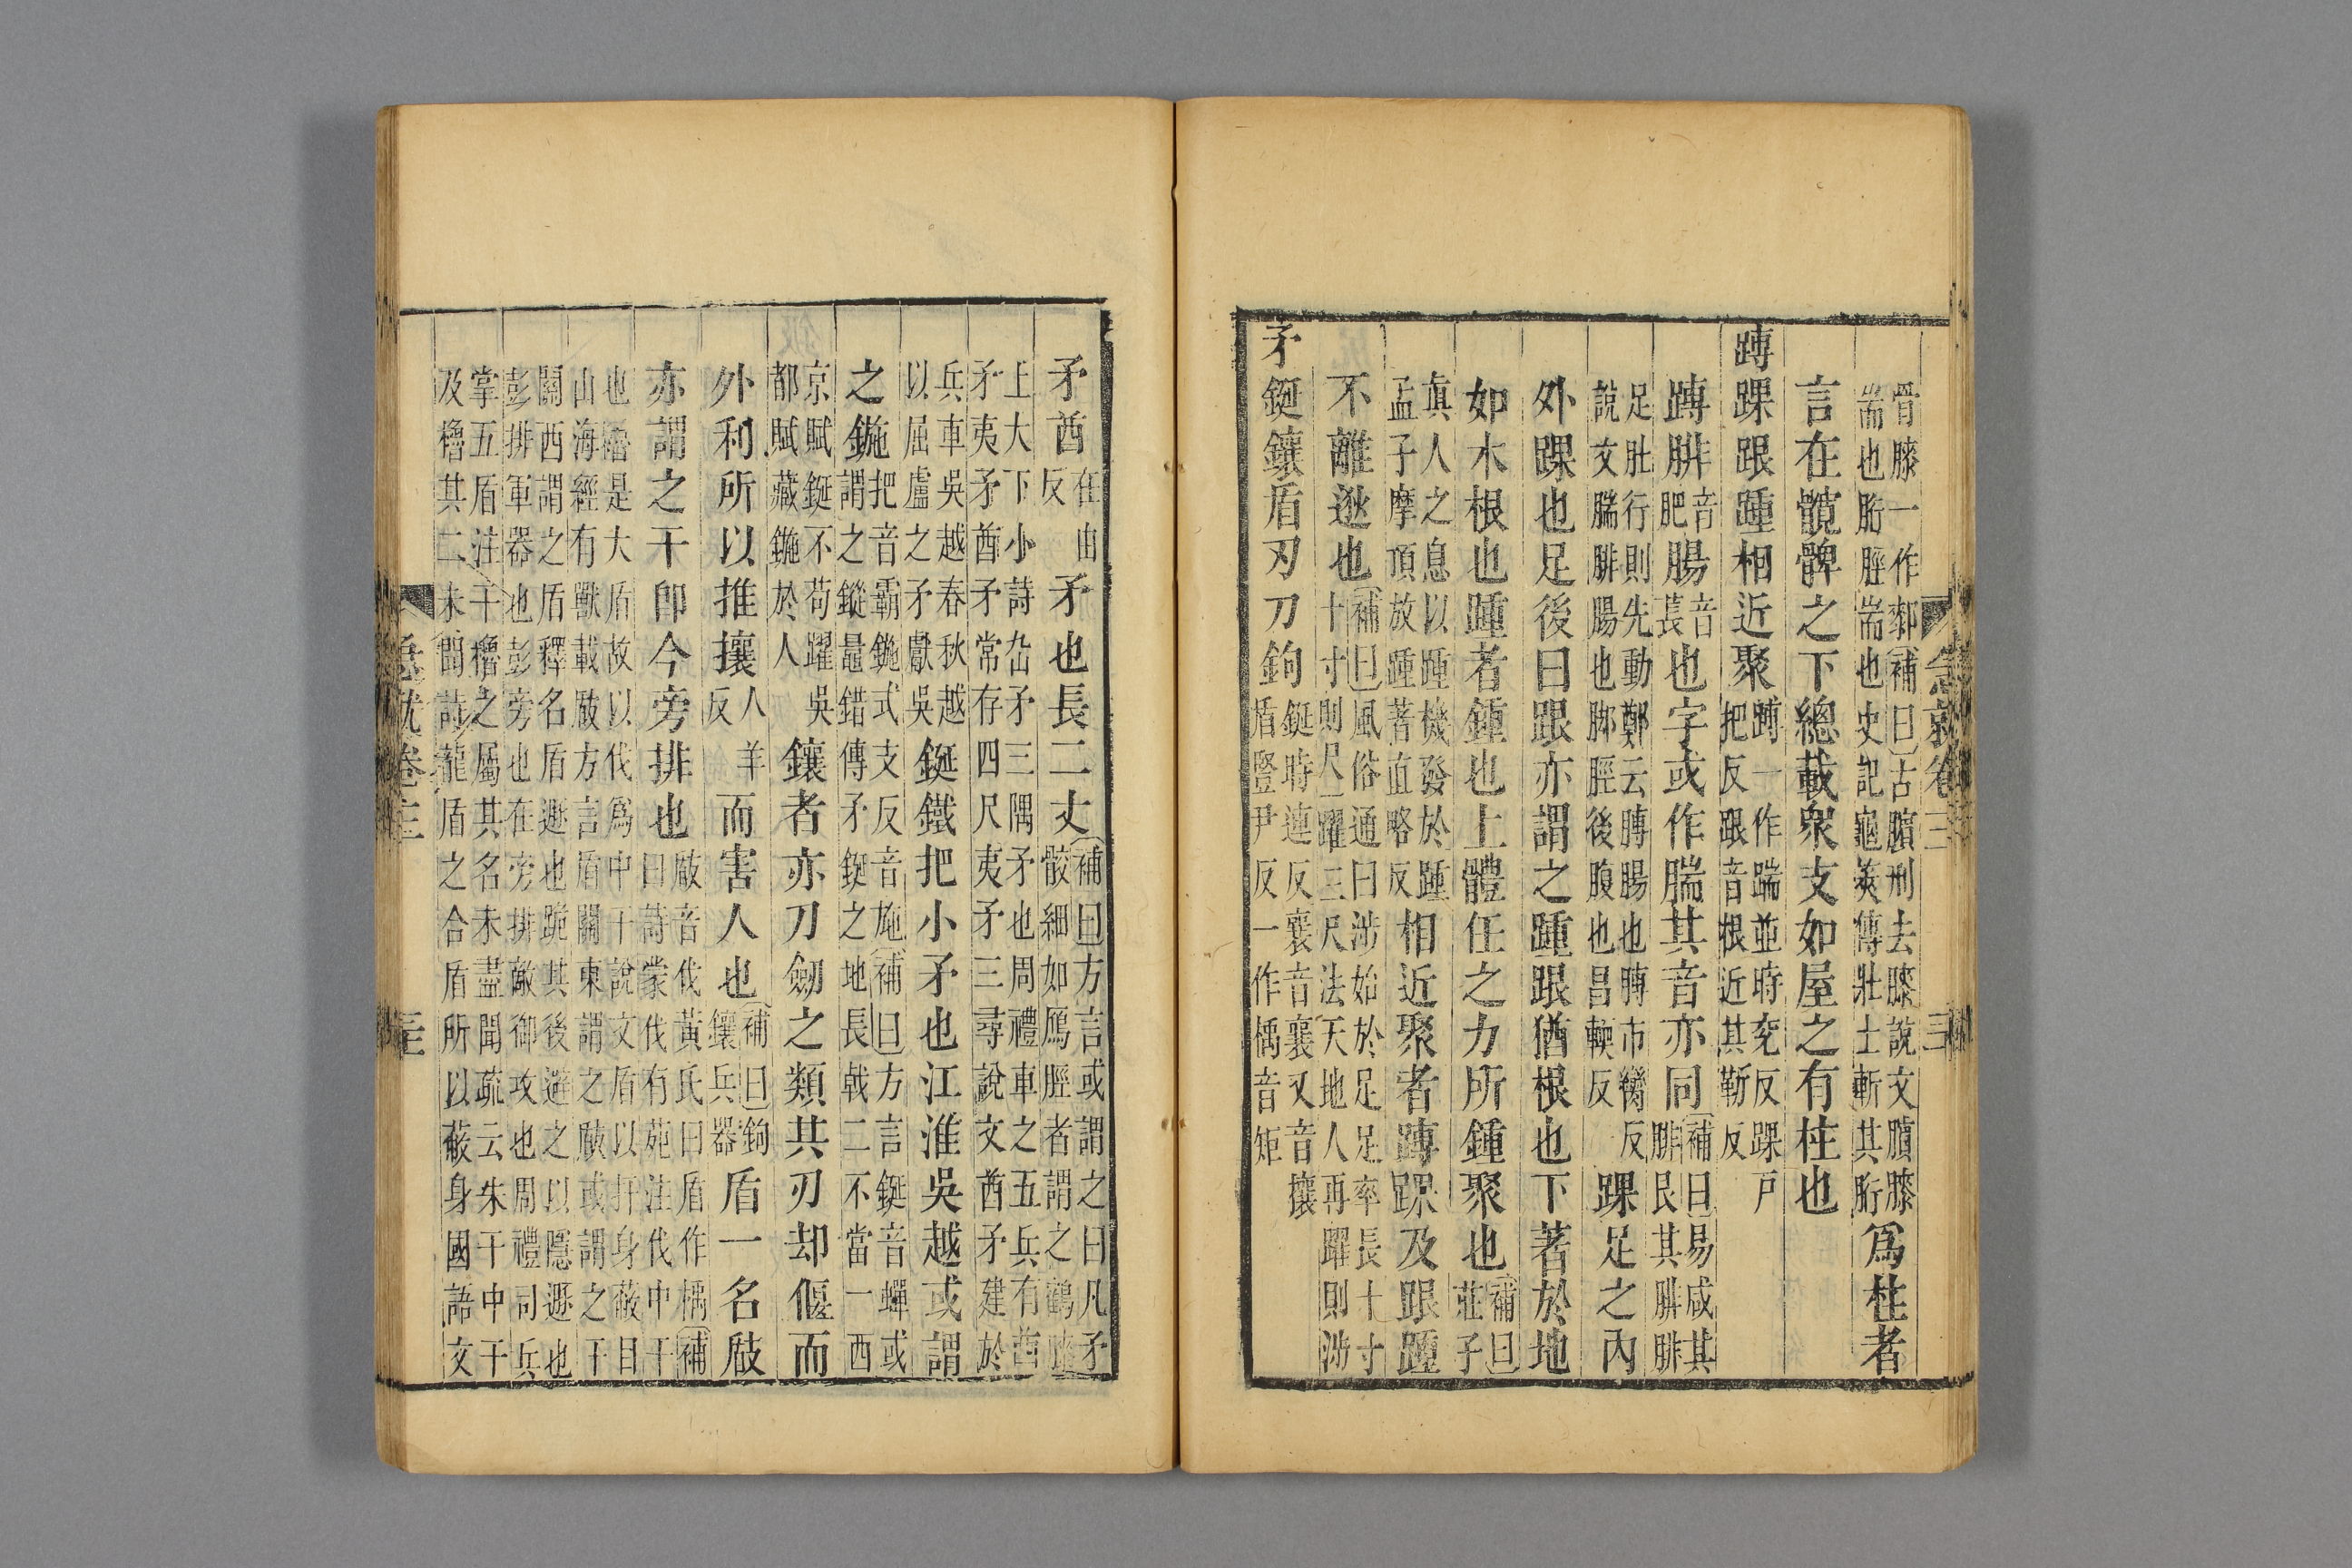 骨膝一作䣛補曰古臏刑去膝說文臏膝
耑也胻脛耑也史記龜策傳壯士斬其胻爲柱者
言在髖髀之下總載衆支如屋之有柱也
踝跟踵相近聚
把反跟音根近其靳反
腨腓音肥腸音萇也字或作腨其音亦同補曰易咸其腓艮其腓腓
足肚行則先動鄭云膞腸也膞市臠反
說文腨腓腸也脚脛後腹也昌輭反踝足之內
外踝也足後曰跟亦謂之踵跟猶根也下著於地
如木根也踵者鍾也上體任之力所鍾聚也補曰莊子
眞人之息以踵機發於踵
孟子摩頂放踵著直略反相近聚者踝及跟踵
不離逖也補曰風俗通曰涉始於足足率長十寸
十寸則尺一躍三尺法天地人再躍則涉
矛鋋鑲盾刃刀鉤鋋時連反襄音襄又音攘
盾豎尹反一作楯音矩
矛酋在由反矛也長二丈補曰方言或謂之曰凡矛
骹細如鴈脛者謂之鶴
上大下小詩厹矛三隅矛也周禮車之五兵有酋
矛夷矛酋矛常存四尺夷矛三尋說文酋矛建於
兵車吳越春秋越
以屈盧之矛獻吳鋋鐵把小矛也江淮吳越或謂
之鍦把音霸鍦式支反音施補曰方言鋋音蟬或
謂之鏦鼂錯傳矛鋋之地長戟二不當一西
京賦鋋不苟躍吳
都賦藏鍦於人鑲者亦刀劒之類其刃却偃而
外利所以推攘人羊反而害人也補曰鉤鑲兵器盾一名瞂
亦謂之干即今旁排也瞂音伐黃氏曰盾作楯補
曰詩蒙伐有苑注伐中干
也櫓是大盾故以伐爲中干說文盾以扞身蔽目
山海經有獸載瞂方言盾關東謂之瞂或謂之干
關西謂之盾釋名盾遯也跪其後避之以隱遯也
彭排軍器也彭旁也在旁排敵御攻也周禮司兵
掌五盾注干櫓之屬其名未盡聞疏云朱干中干
及櫓其二未聞詩龍盾之合盾所以蔽身國語文